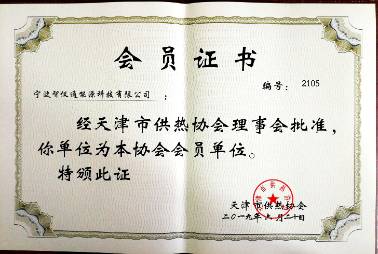 会员证书
编号: 2105
宁波智仪通能源科技有限公司:
经天津市供热协会理事会批准,
你单位为本协会会员单位。
特颁此证
天津市供热协会
二〇一九年九月二十日